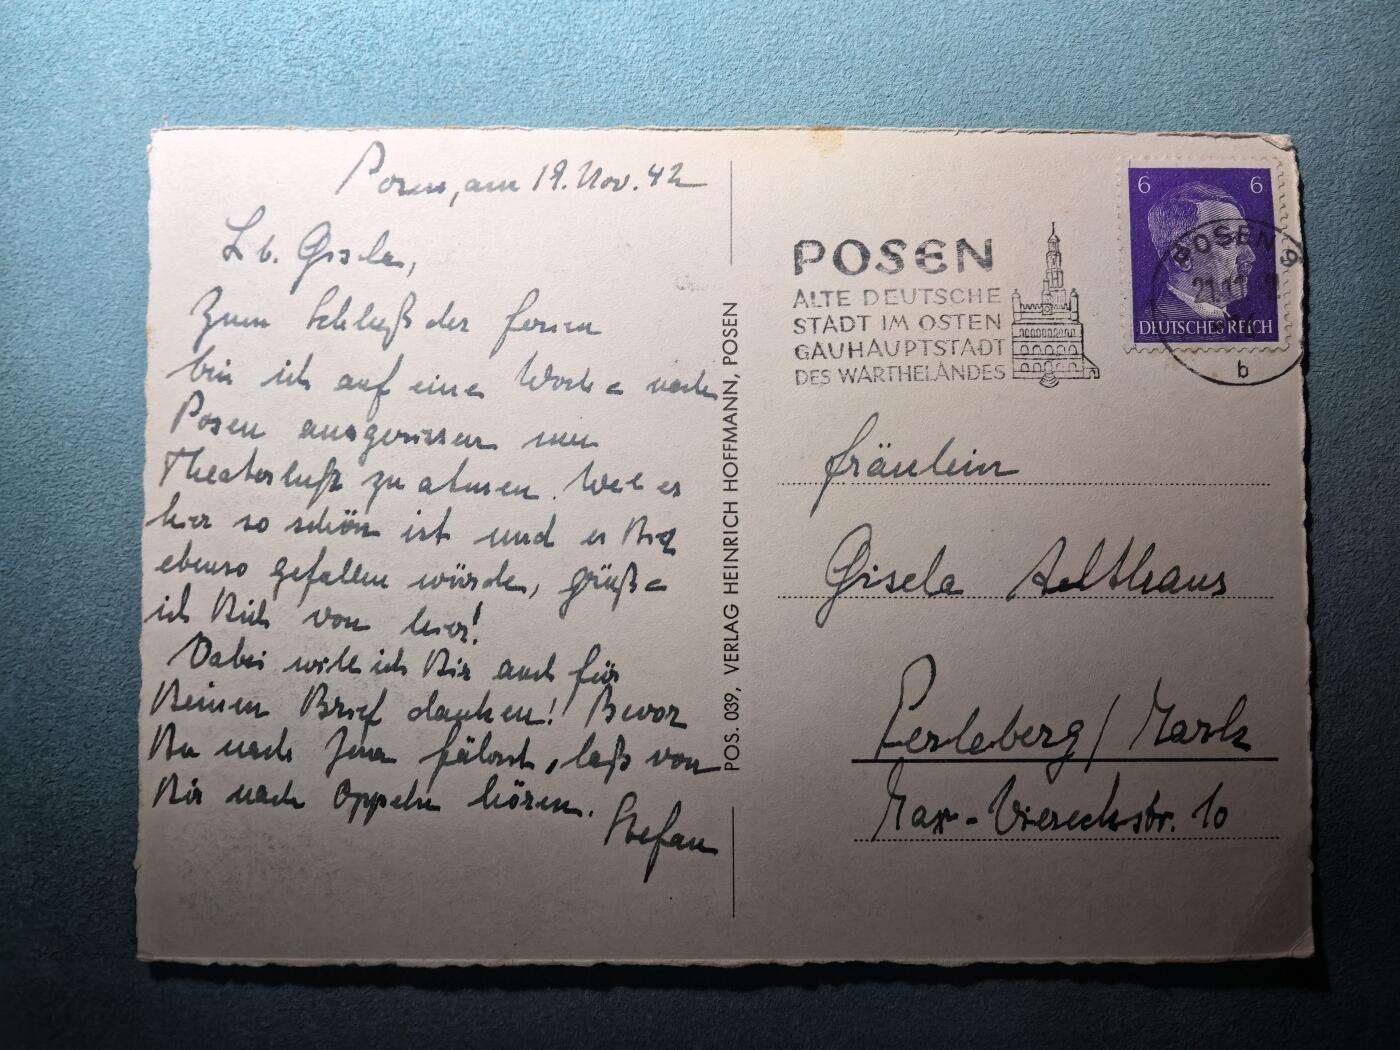 Posen, am 19. Nov. 42
Lb. Gisela,
Zum Schluß der Ferien
bin ich auf eine Woche nach
Posen ausgerissen um
Theaterluft zu atmen. Weil es
hier so schön ist und es Dir
ebenso gefallen würde, grüße
ich Dich von hier!
Dabei will ich Dir auch für
Deinen Brief danken! Bevor
Du nach Jena fährst, laß von
Dir nach Oppeln hören.
Stefan
POS. 039, VERLAG HEINRICH HOFFMANN, POSEN
POSEN
ALTE DEUTSCHE
STADT IM OSTEN
GAUHAUPTSTADT
DES WARTHELANDES
6 6
DEUTSCHES REICH
POSEN 9
21.11.
b
Fräulein
Gisela Althaus
Perleberg / Mark
Max-Viereckstr. 10